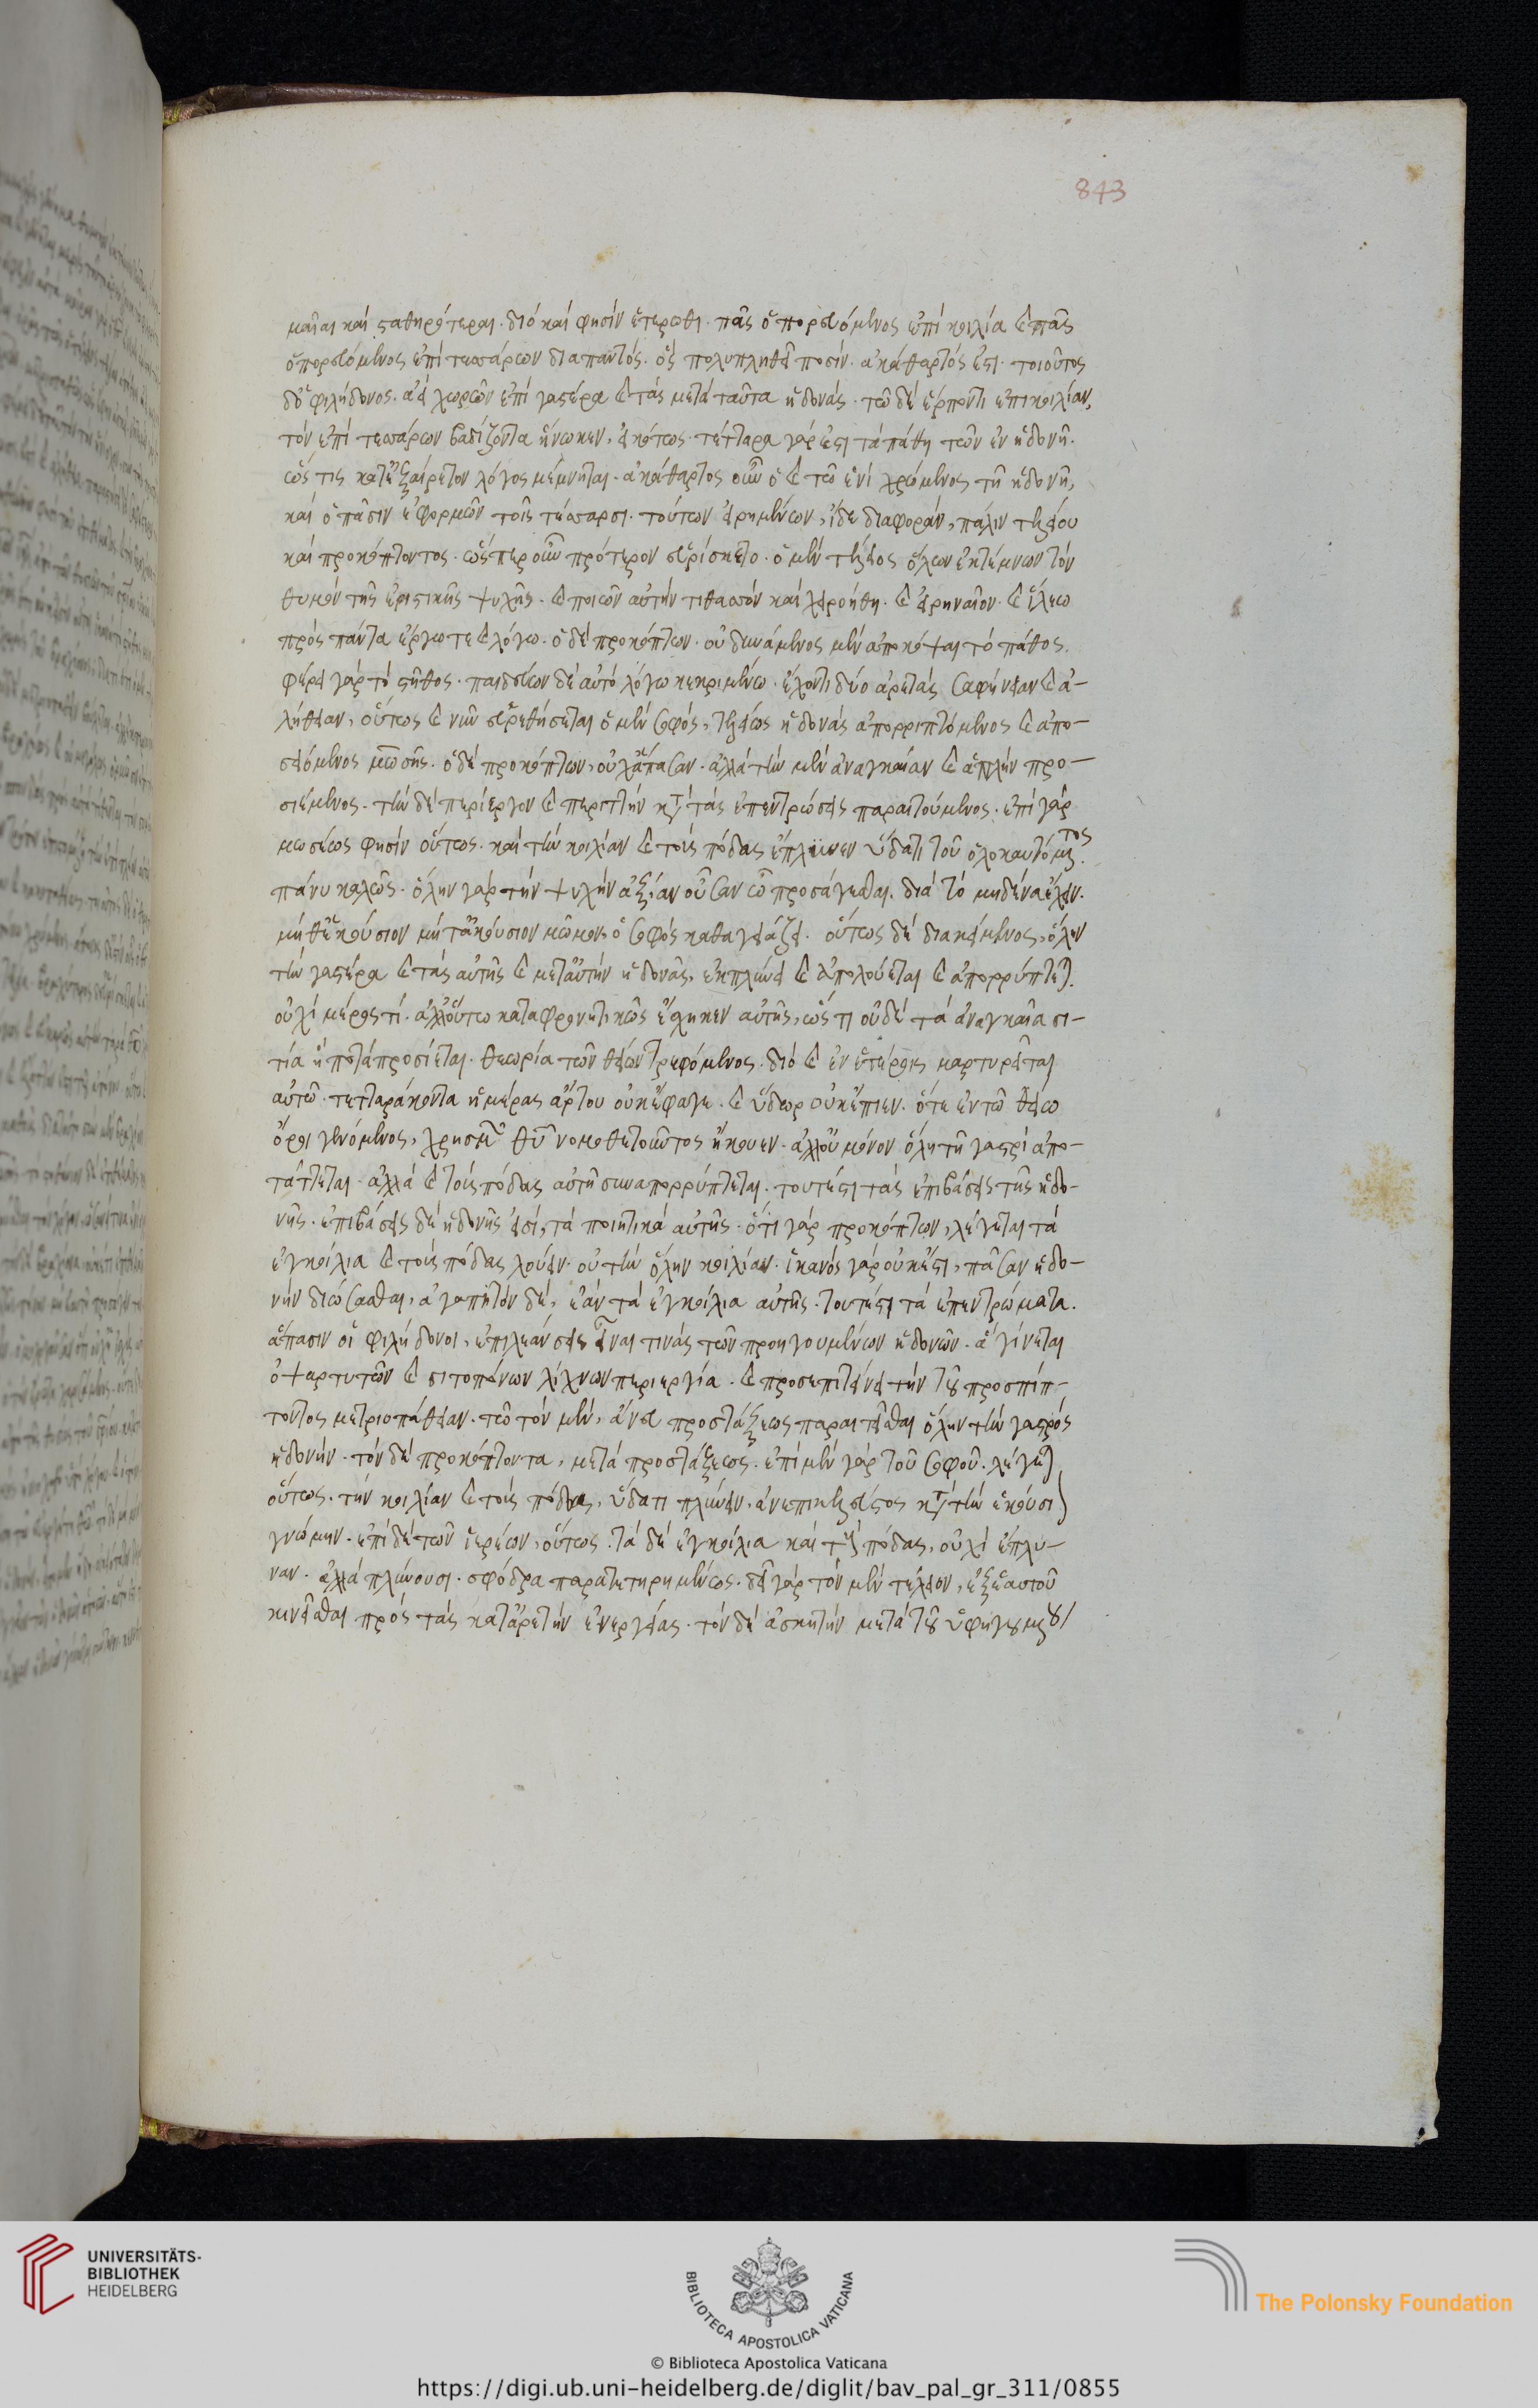 843
μαῖαι καὶ σταθηρότεραι· διὸ καὶ φησὶν ἑτέρωθι· πᾶς ὁ πορευόμενος ἐπὶ κοιλία καὶ πᾶς
ὁ πορευόμενος ἐπὶ τεσσάρων διαπαντός· ὃς πολυπληθεῖ ποσὶν· ἀκάθαρτός ἐστι· τοιοῦτος
δ' ὁ φιλήδονος· ἀεὶ χωρῶν ἐπὶ γαστέρα καὶ τὰς μετὰ ταῦτα ἡδονάς· τῶ δὲ ἕρποντι ἐπικοιλίαν,
τὸν ἐπὶ τεσσάρων βαδίζοντα ἥνωκεν, εἰκότως· τέτταρα γάρ ἐστι τὰ πάθη τῶν ἐν ἡδονῆ·
ὥς τις κατ' ἐξαίρετον λόγος μέμνηται· ἀκάθαρτος οὖν ὁ καὶ τῶ ἑνὶ χρώμενος τῆ ἡδονῆ,
καὶ ὁ πᾶσιν ἐφορμῶν τοῖς τέσσαρσι· τούτων εἰρημένων, ἴδε διαφορὰν, πάλιν τελείου
καὶ προκόπτοντος· ὥσπερ οὖν πρότερον εὑρίσκετο· ὁ μὲν τέλειος ὅλων ἐκτέμνων τὸν
θυμὸν τῆς ἐριστικῆς ψυχῆς· καὶ ποιῶν αὐτὴν τιθασσὸν καὶ χειροήθη· καὶ εἰρηναῖον· καὶ ἵλεω
πρὸς πάντα ἔργω τε καὶ λόγω· ὁ δὲ προκόπτων· οὐ δυνάμενος μὲν ἀποκόψαι τὸ πάθος·
φέρει γὰρ τὸ στῆθος· παιδεύων δὲ αὐτὸ λόγω κεκριμένω· ἔχοντι δύο ἀρετὰς σαφήνειαν καὶ ἀ-
λήθειαν, οὕτως καὶ νῦν εὑρεθήσεται ὁ μὲν σοφός, τελείως ἡδονὰς ἀπορριπτόμενος καὶ ἀπο-
σειόμενος μωσῆς· ὁ δὲ προκόπτων, οὐχ ἅπασαν· ἀλλὰ τὴν μὲν ἀναγκαίαν καὶ ἁπλῆν προ-
σιέμενος· τὴν δὲ περίεργον καὶ περιττὴν κατὰ τὰς ἐπεντρώσεις παραιτούμενος· ἐπὶ γὰρ
μωσέως φησὶν οὕτως· καὶ τὴν κοιλίαν καὶ τοὺς πόδας ἔπλυνεν ὕδατι τοῦ ὁλοκαυτώματος·
πάνυ καλῶς· ὅλην γὰρ τὴν ψυχὴν ἀξίαν οὖσαν θῶ προσάγεσθαι· διὰ τὸ μηδένα ἔχειν·
μήθ' ἑκούσιον μήτ' ἀκούσιον μῶμον, ὁ σοφὸς καθαγιάζει· οὕτως δὲ διακείμενος, ὅλην
τὴν γαστέρα καὶ τὰς αὐτῆς καὶ μετ' αὐτὴν ἡδονὰς, ἐκπλύνει καὶ ἀπολούεται καὶ ἀπορρύπτεται·
οὐχὶ μέρος τί· ἀλλ' οὕτω καταφρονητικῶς ἔσχηκεν αὐτῆς, ὥς τι οὐδὲ τὰ ἀναγκαῖα σι-
τία ἢ ποτὰ προσίεται· θεωρία τῶν θείων τρεφόμενος· διὸ καὶ ἐν ἑτέροις μαρτυρεῖται
αὐτῶ· τετταράκοντα ἡμέρας ἄρτον οὐκ ἔφαγε· καὶ ὕδωρ οὐκ ἔπιεν· ὅτε ἐν τῶ θείω
ὄρει γενόμενος, χρησμοῦ θυ νομοθετοῦντος ἤκουεν· ἀλλ' οὐ μόνον ὅλη τῆ γαστρὶ ἀπο-
τάττεται· ἀλλὰ καὶ τοὺς πόδας αὐτῆ συναπορρύπτεται· τουτέστι τὰς ἐπιβάσεις τῆς ἡδο-
νῆς· ἐπιβάσεις δὲ ἡδονῆς εἰσὶ, τὰ ποιητικὰ αὐτῆς· ὅτι γὰρ προκόπτων, λέγεται τὰ
ἐγκοίλια καὶ τοὺς πόδας λούειν· οὐ τὴν ὅλην κοιλίαν· ἱκανὸς γὰρ οὐκ ἔστι, πᾶσαν ἡδο-
νὴν διώσασθαι, ἀγαπητὸν δὲ, ἐὰν τὰ ἐγκοίλια αὐτῆς· τουτέστι τὰ ἐπεντρώματα·
ἅπασιν οἱ φιλήδονοι, ἐπιλεάνσεις εἶναι τινὰς τῶν προηγουμένων ἡδονῶν· ἃ γίνεται
ὀψαρτυτῶν καὶ σιτοπόνων λίχνων περιεργία· καὶ προσεπιτείνει τὴν τοῦ προσπίπ-
τοντος μετριοπάθειαν· τῶ τὸν μὲν, ἄνευ προστάξεως παραιτεῖσθαι ὅλην τὴν γαστρὸς
ἡδονὴν· τὸν δὲ προκόπτοντα, μετὰ προστάξεως· ἐπὶ μὲν γὰρ τοῦ σοφοῦ· λέγεται
οὕτως· τὴν κοιλίαν καὶ τοὺς πόδας, ὕδατι πλύνειν, ἀνεπικελεύστος κατὰ τὴν ἑκούσιον
γνώμην· ἐπὶ δὲ τῶν ἱερέων, οὕτως· τὰ δὲ ἐγκοίλια καὶ τοὺς πόδας, οὐχὶ ἔπλυ-
ναν· ἀλλὰ πλύνουσι· σφόδρα παρατετηρημένως· δεῖ γὰρ τὸν μὲν τέλειον, ἐξ ἑαυτοῦ
κινεῖσθαι πρὸς τὰς κατ' ἀρετὴν ἐνεργείας· τὸν δὲ ἀσκητὴν μετὰ τοῦ ὑφηγουμένου
UNIVERSITÄTS-
BIBLIOTHEK
HEIDELBERG
BIBLIOTECA APOSTOLICA VATICANA
The Polonsky Foundation
© Biblioteca Apostolica Vaticana
https://digi.ub.uni-heidelberg.de/diglit/bav_pal_gr_311/0855